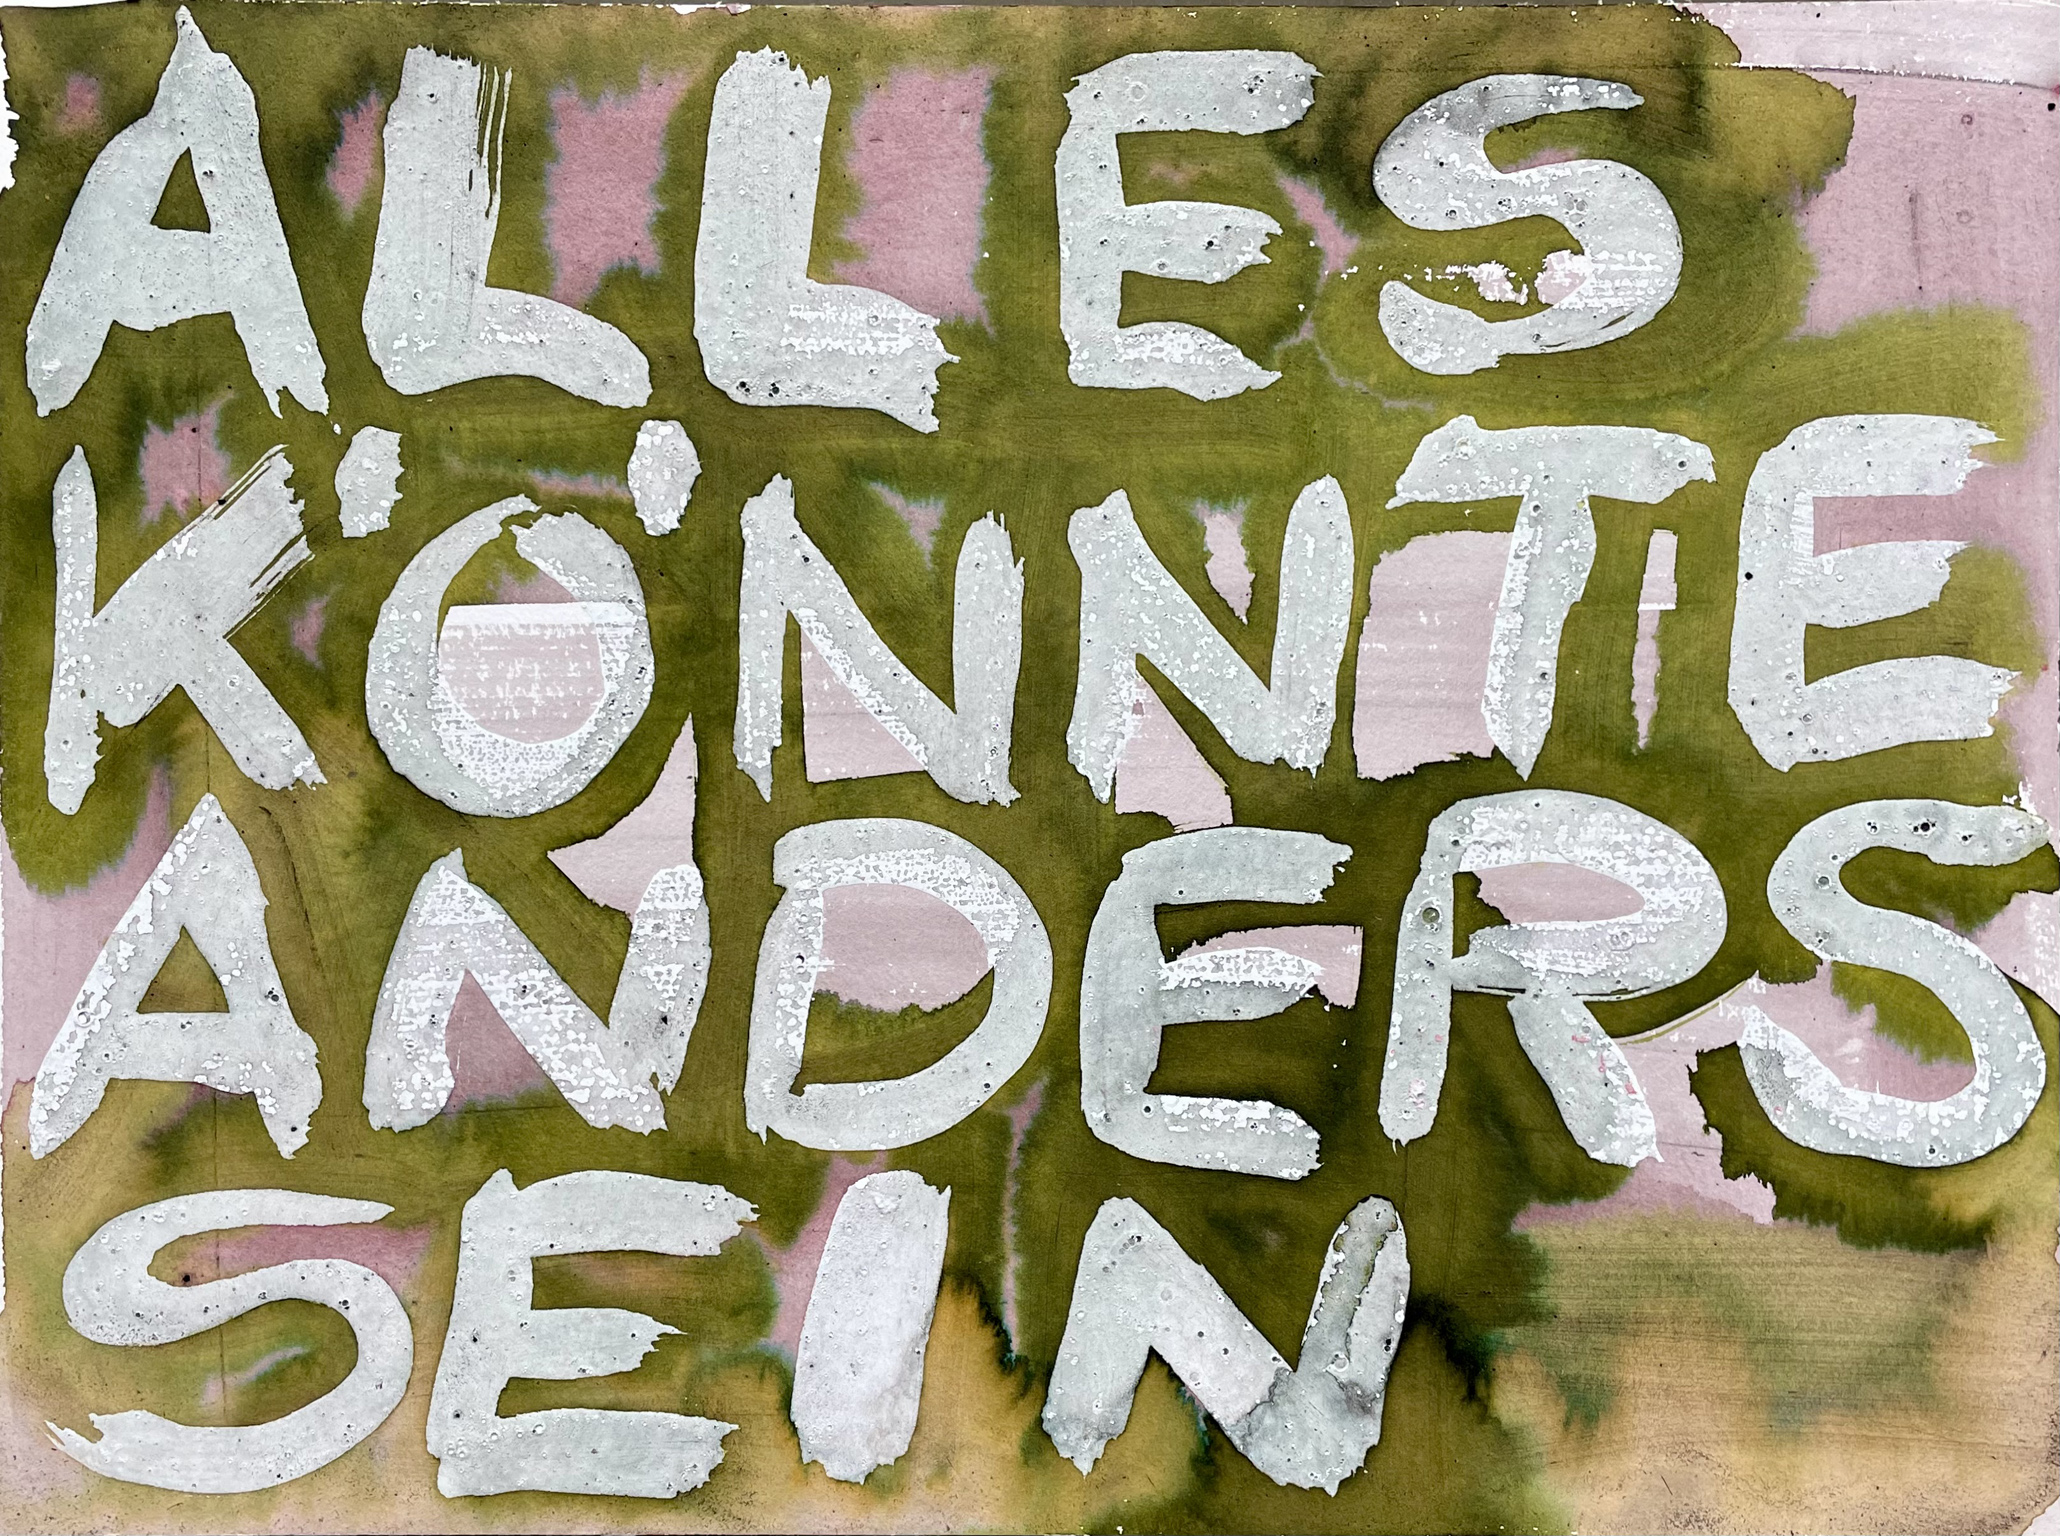 ALLES
KÖNNTE
ANDERS
SEIN